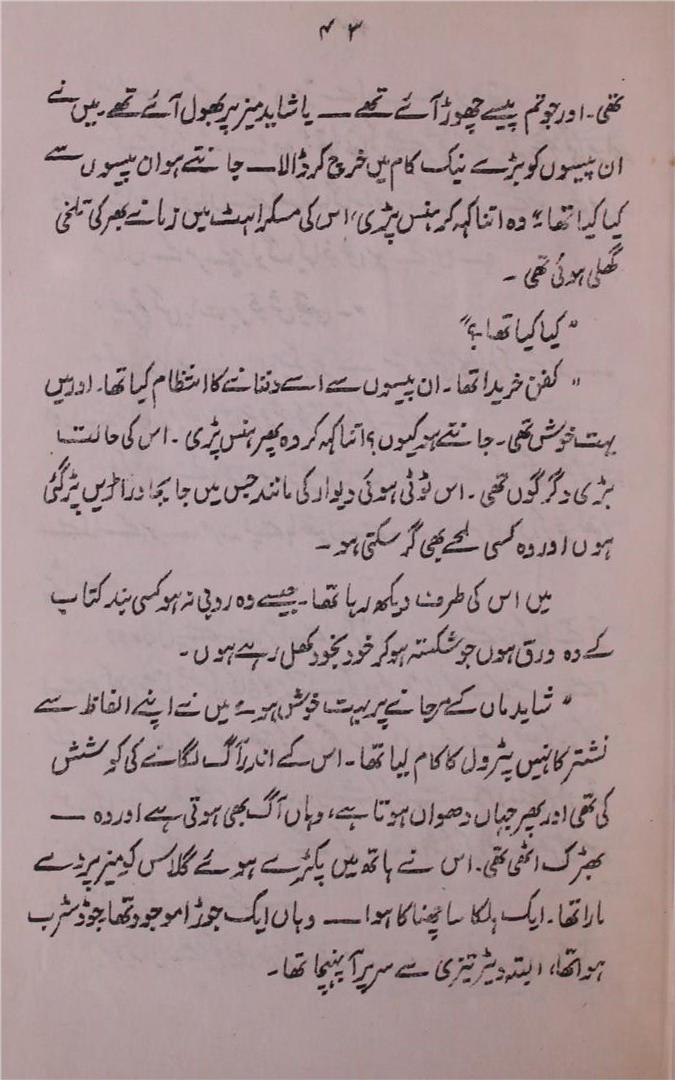 ۴۳
تھی۔ اور جو تم پیسے چھوڑ آئے تھے — یا شاید میز پر بھول آئے تھے میں نے
ان پیسوں کو بڑے نیک کام میں خرچ کر ڈالا — جانتے ہو ان پیسوں سے
کیا کیا تھا؟" وہ اتنا کہہ کر ہنس پڑی، اس کی مسکراہٹ میں زمانے بھر کی تلخی
گھلی ہوئی تھی۔
"کیا کیا تھا۔؟"
"کفن خریدا تھا۔ ان پیسوں سے اسے دفنانے کا انتظام کیا تھا۔ اور میں
بہت خوش تھی۔ جانتے ہو کیوں؟ اتنا کہہ کر وہ پھر ہنس پڑی۔ اس کی حالت
بڑی دگرگوں تھی۔ اس ٹوٹی ہوئی دیوار کی مانند جس میں جا بجا دراڑیں پڑ گئی
ہوں اور وہ کسی لمحے بھی گر سکتی ہو۔
میں اس کی طرف دیکھ رہا تھا۔ جیسے وہ روپی نہ ہو کسی بند کتاب
کے وہ ورق ہوں جو شکستہ ہو کر خود بخود کھل رہے ہوں۔
"شاید ماں کے مر جانے پر بہت خوش ہو۔" میں نے اپنے الفاظ سے
نشتر کا نہیں پٹرول کا کام لیا تھا۔ اس کے اندر آگ لگانے کی کوشش
کی تھی اور پھر جہاں دھواں ہوتا ہے، وہاں آگ بھی ہوتی ہے اور وہ —
بھڑک اٹھی تھی۔ اس نے ہاتھ میں پکڑے ہوئے گلاس کو میز پر دے
مارا تھا۔ ایک ہلکا سا چھناکا ہوا — وہاں ایک جوڑا موجود تھا جو ڈسٹرب
ہوا تھا، البتہ ویٹر تیزی سے سر پر آ پہنچا تھا۔